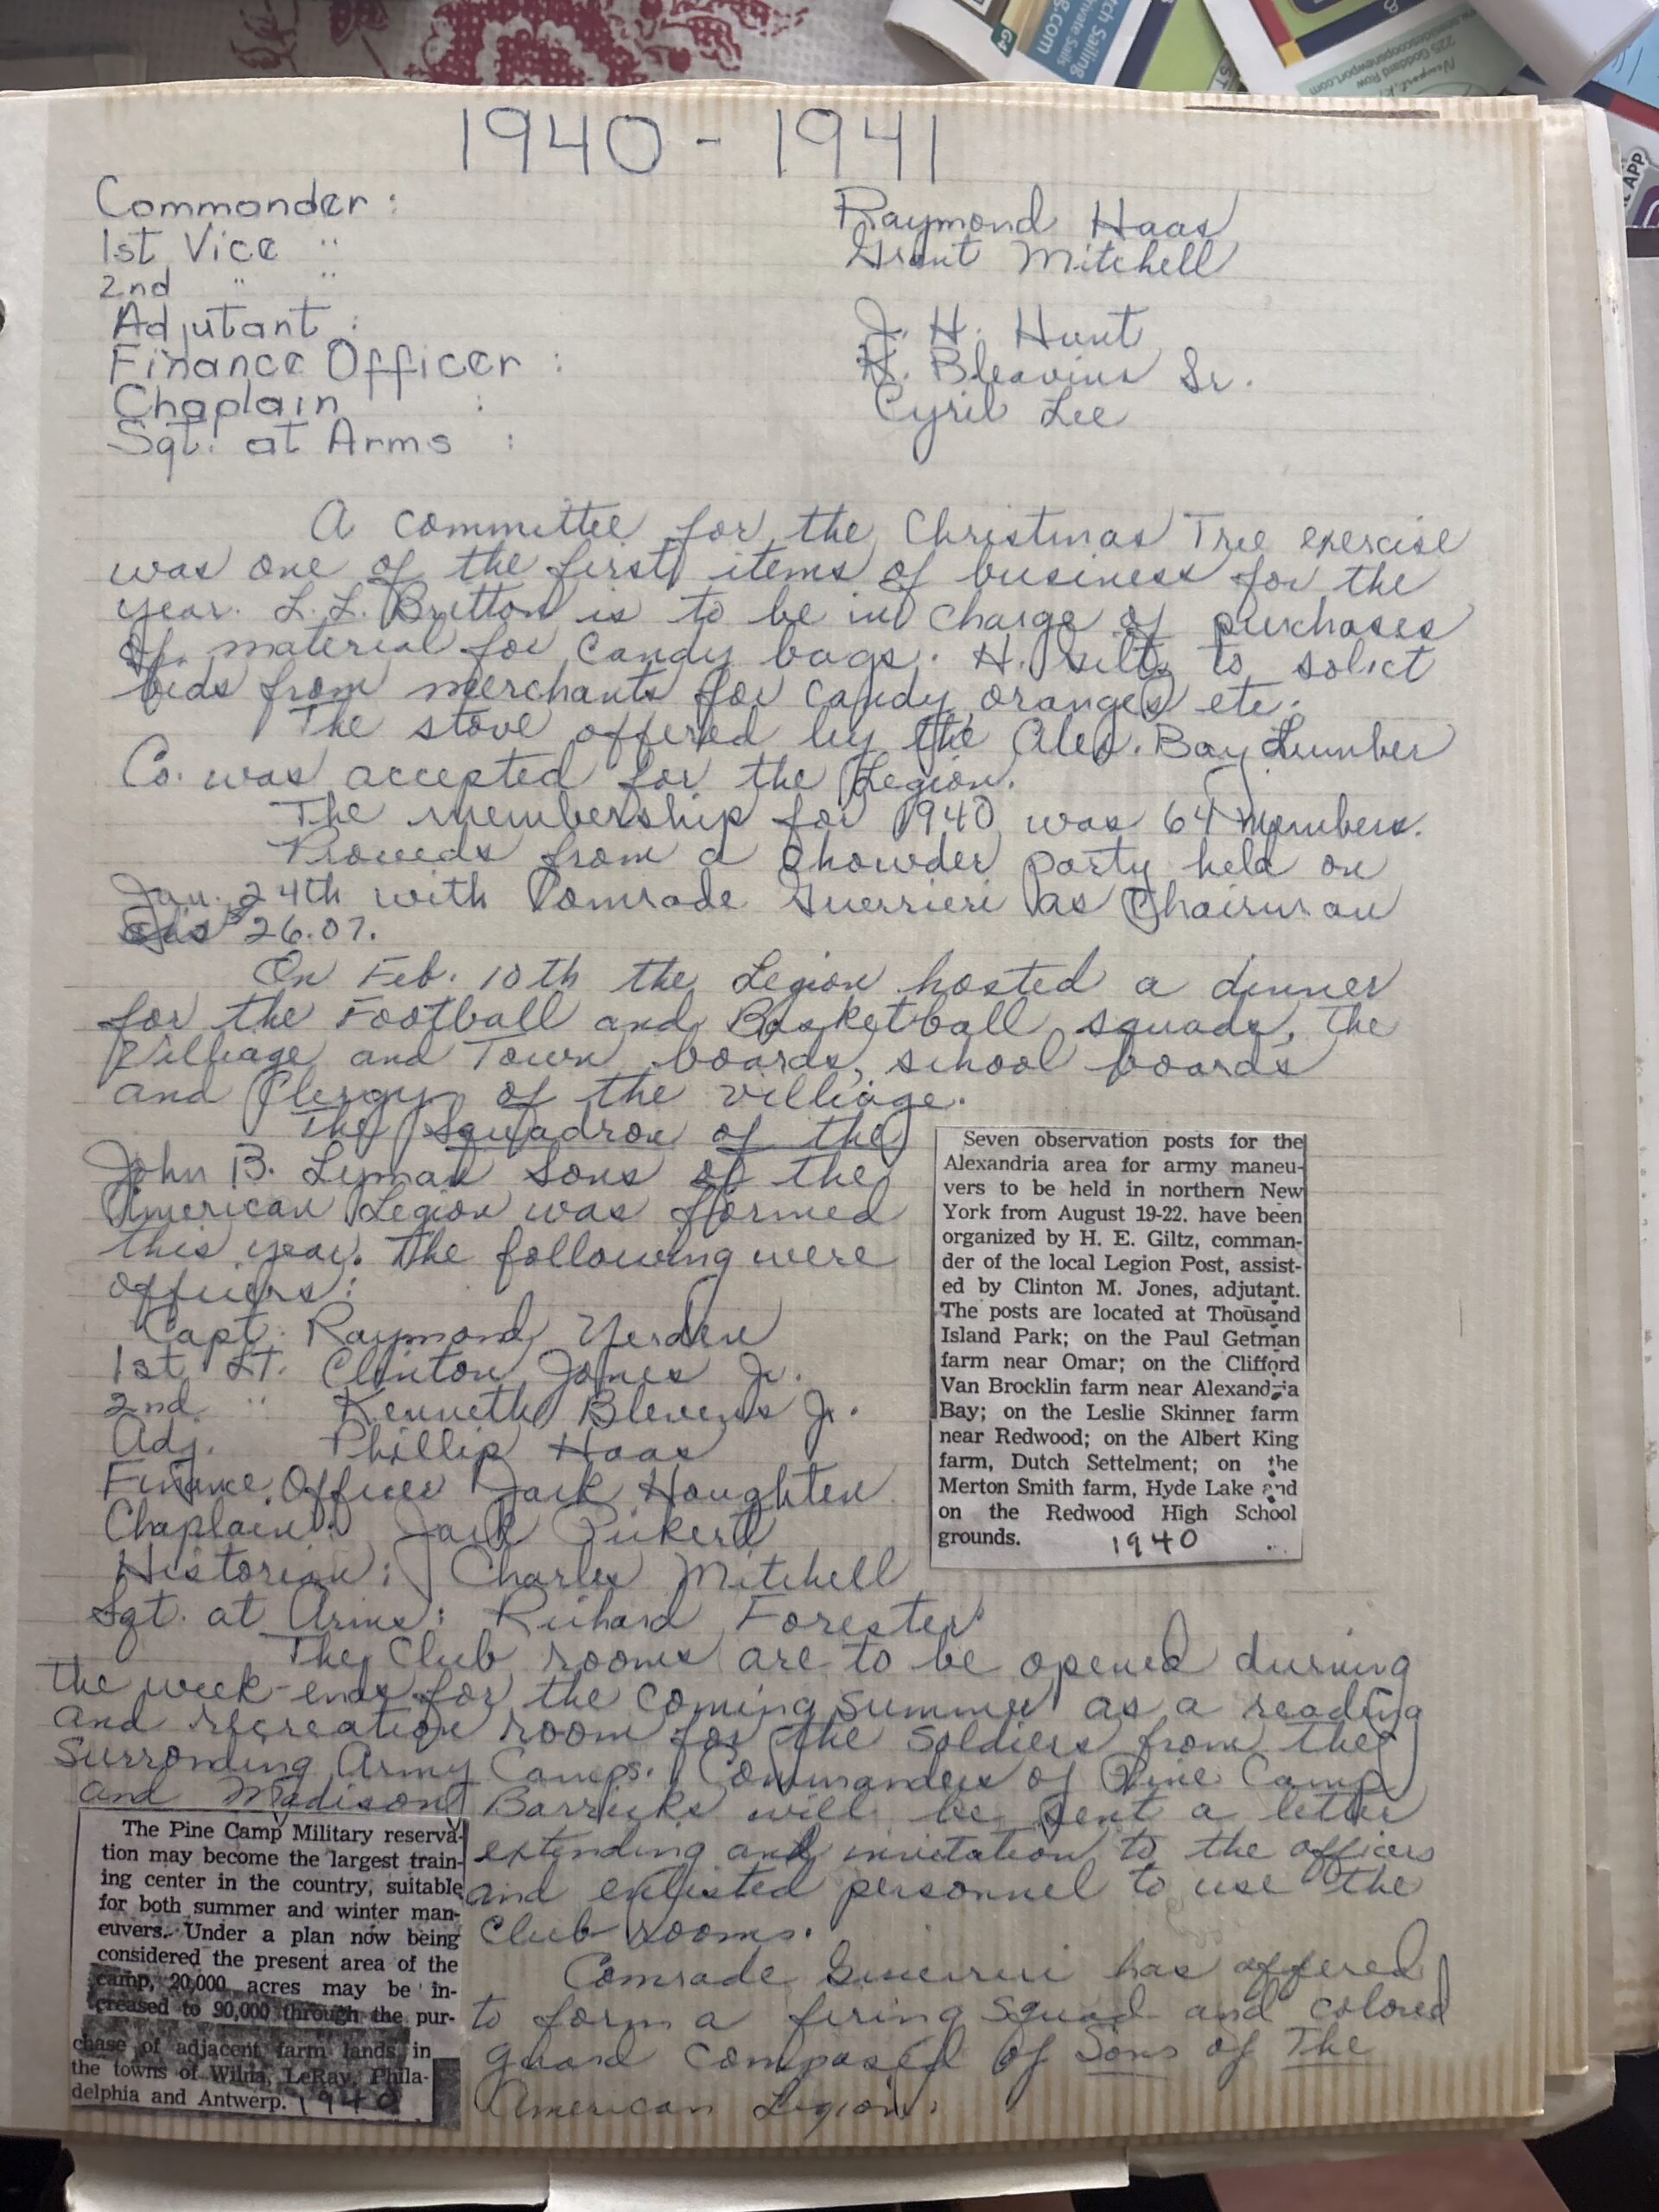 1940 - 1941
Commander : Raymond Haas
1st Vice " Grant Mitchell
2nd " "
Adjutant : J. H. Hunt
Finance Officer : K. Bleavins Sr.
Chaplain : Cyril Lee
Sgt. at Arms :
A committee for the Christmas Tree exercise
was one of the first items of business for the
year. L.L. Britton is to be in charge of purchases
of material for candy bags. H. Giltz to solict
bids from merchants for candy, oranges etc.
The stove offered by the Alex. Bay Lumber
Co. was accepted for the Legion.
The membership for 1940 was 64 members.
Proceeds from a Chowder party held on
Jan. 24th with Comrade Guerrieri as Chairman
$26.07.
On Feb. 10th the Legion hosted a dinner
for the Football and Basketball squads, the
Villiage and Town boards, school boards
and Clergy of the villiage.
The Squadron of the
John B. Lyman Sons of the
American Legion was formed
this year. The following were
officers:
Capt. Raymond Yerden
1st Lt. Clinton Jones Jr.
2nd " Kenneth Blevens Jr.
Adj. Phillip Haas
Finance Officer Jack Houghten
Chaplain: Jack Pickert
Historian: Charles Mitchell
Sgt. at Arms: Richard Forester
Seven observation posts for the
Alexandria area for army maneu-
vers to be held in northern New
York from August 19-22. have been
organized by H. E. Giltz, comman-
der of the local Legion Post, assist-
ed by Clinton M. Jones, adjutant.
The posts are located at Thousand
Island Park; on the Paul Getman
farm near Omar; on the Clifford
Van Brocklin farm near Alexandria
Bay; on the Leslie Skinner farm
near Redwood; on the Albert King
farm, Dutch Settelment; on the
Merton Smith farm, Hyde Lake and
on the Redwood High School
grounds. 1940
The Club rooms are to be opened durning
the week-ends for the coming summer as a reading
and recreation room for the soldiers from the
surronding Army Camps. Commanders of Pine Camp
and Madison Barricks will be sent a letter
extending an invitation to the officers
and enlisted personnel to use the
Club rooms.
Comrade Guerrieri has offered
to form a firing squad and colored
guard composed of Sons of The
American Legion.
The Pine Camp Military reserva-
tion may become the largest train-
ing center in the country, suitable
for both summer and winter man-
euvers. Under a plan now being
considered the present area of the
camp, 20,000 acres may be in-
creased to 90,000 through the pur-
chase of adjacent farm lands in
the towns of Wilna, LeRay, Phila-
delphia and Antwerp. 1940
tch Sailing
rivate Sails
8.com
G4
225 Goddard Row
Newport, RI
APP